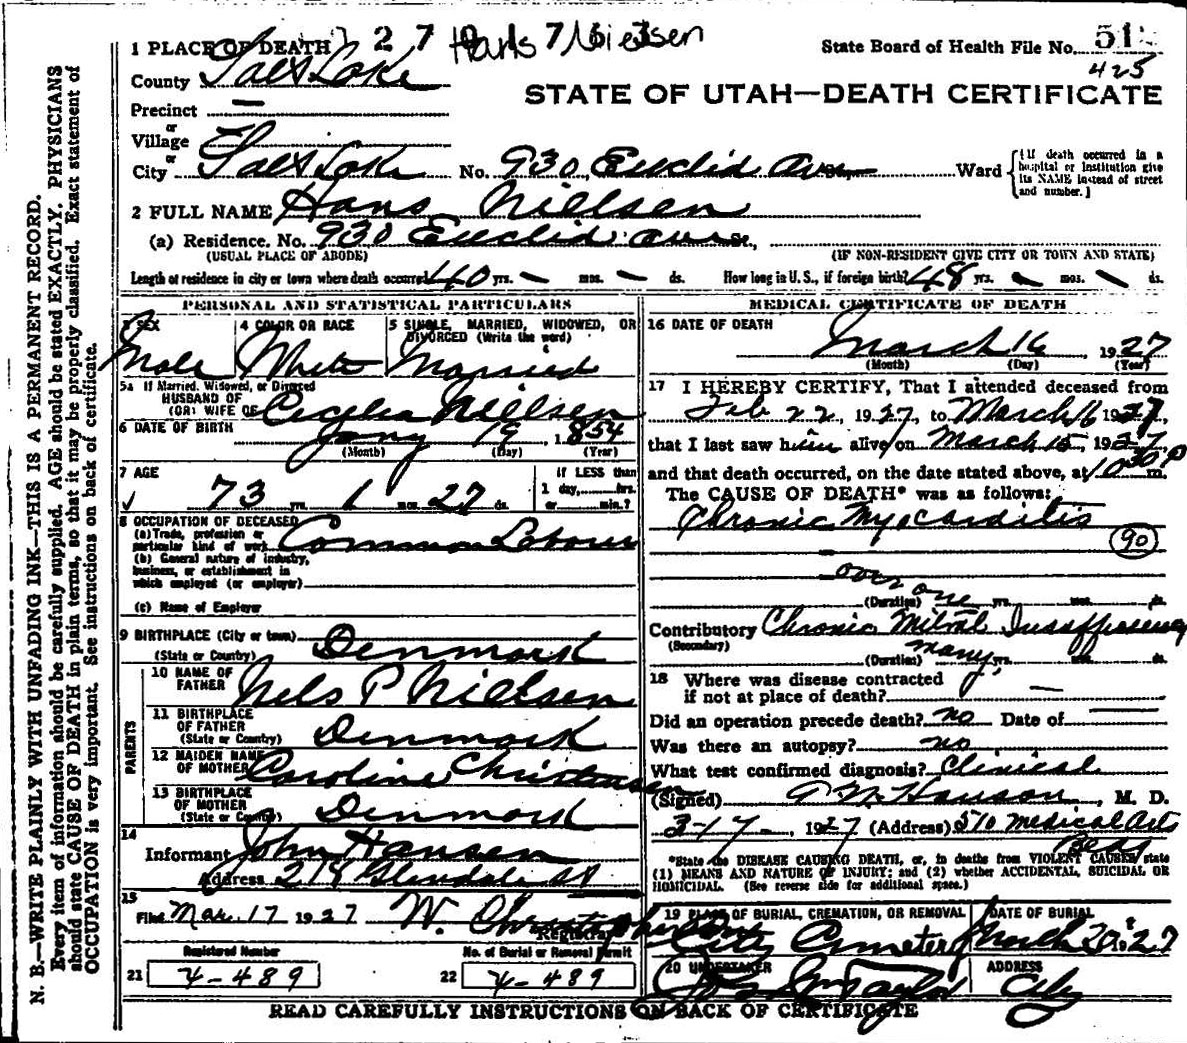 N. B.—WRITE PLAINLY WITH UNFADING INK—THIS IS A PERMANENT RECORD.
Every item of information should be carefully supplied. AGE should be stated EXACTLY. PHYSICIANS
should state CAUSE OF DEATH in plain terms, so that it may be properly classified. Exact statement of
OCCUPATION is very important. See instructions on back of certificate.
27 Hans Nielsen
1 PLACE OF DEATH
State Board of Health File No. 51
425
County Salt Lake
STATE OF UTAH—DEATH CERTIFICATE
Precinct —
or
Village
or
City Salt Lake No. 930 Euclid Ave St. Ward
{If death occurred in a
hospital or institution give
its NAME instead of street
and number.]
2 FULL NAME Hans Nielsen
(a) Residence. No. 930 Euclid ave St.,
(USUAL PLACE OF ABODE) (IF NON-RESIDENT GIVE CITY OR TOWN AND STATE)
Length of residence in city or town where death occurred 40 yrs. — mos. — ds. How long in U. S., if foreign birth? 48 yrs. — mos. — ds.
PERSONAL AND STATISTICAL PARTICULARS
3 SEX
Male
4 COLOR OR RACE
White
5 SINGLE, MARRIED, WIDOWED, OR
DIVORCED (Write the word)
Married
5a If Married, Widowed, or Divorced
HUSBAND OF
(OR) WIFE OF Cecelia Nielsen
6 DATE OF BIRTH Jany 19 1854
(Month) (Day) (Year)
7 AGE
73 yrs. 1 mos. 27 ds.
If LESS than
1 day, hrs.
or min.?
8 OCCUPATION OF DECEASED
(a) Trade, profession or
particular kind of work Common Laborer
(b) General nature of industry,
business, or establishment in
which employed (or employer)
(c) Name of Employer
9 BIRTHPLACE (City or town)
(State or Country) Denmark
PARENTS
10 NAME OF
FATHER Nels P Nielsen
11 BIRTHPLACE
OF FATHER
(State or Country) Denmark
12 MAIDEN NAME
OF MOTHER Caroline Christensen
13 BIRTHPLACE
OF MOTHER
(State or Country) Denmark
14
Informant John Hansen
Address 219 Glendale St
15
Filed Mar. 17 1927 W. Christopherson
Registrar
Registered Number
21 4-489
No. of Burial or Removal Permit
22 4-489
MEDICAL CERTIFICATE OF DEATH
16 DATE OF DEATH
March 16, 1927
(Month) (Day) (Year)
17 I HEREBY CERTIFY, That I attended deceased from
Feb 22, 1927, to March 16 1927,
that I last saw him alive on March 15, 1927,
and that death occurred, on the date stated above, at 10 30 P m.
The CAUSE OF DEATH* was as follows:
Chronic Myocarditis
90
over one
(Duration) yrs. mos. ds.
Contributory Chronic Mitral
(Secondary)
(Duration) many yrs. mos. ds.
18 Where was disease contracted
if not at place of death? —
Did an operation precede death? no Date of
Was there an autopsy? no
What test confirmed diagnosis? Clinical
(Signed) Hanson, M. D.
3-17-, 1927 (Address) 510 Medical Arts
Bldg
*State the DISEASE CAUSING DEATH, or, in deaths from VIOLENT CAUSES state
(1) MEANS AND NATURE OF INJURY; and (2) whether ACCIDENTAL, SUICIDAL OR
HOMICIDAL. (See reverse side for additional space.)
19 PLACE OF BURIAL, CREMATION, OR REMOVAL
City Cemetery
DATE OF BURIAL
March 20, 27
20 UNDERTAKER
Jos. Wm Taylor
ADDRESS
City
READ CAREFULLY INSTRUCTIONS ON BACK OF CERTIFICATE